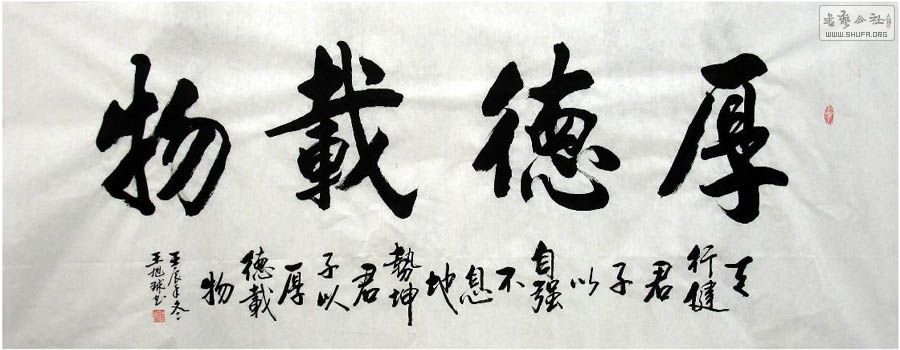 厚德載物
天行健君子以自强不息地勢坤君子以厚德載物
壬辰年冬
王旭球书
書藝公社
WWW.SHUFA.ORG